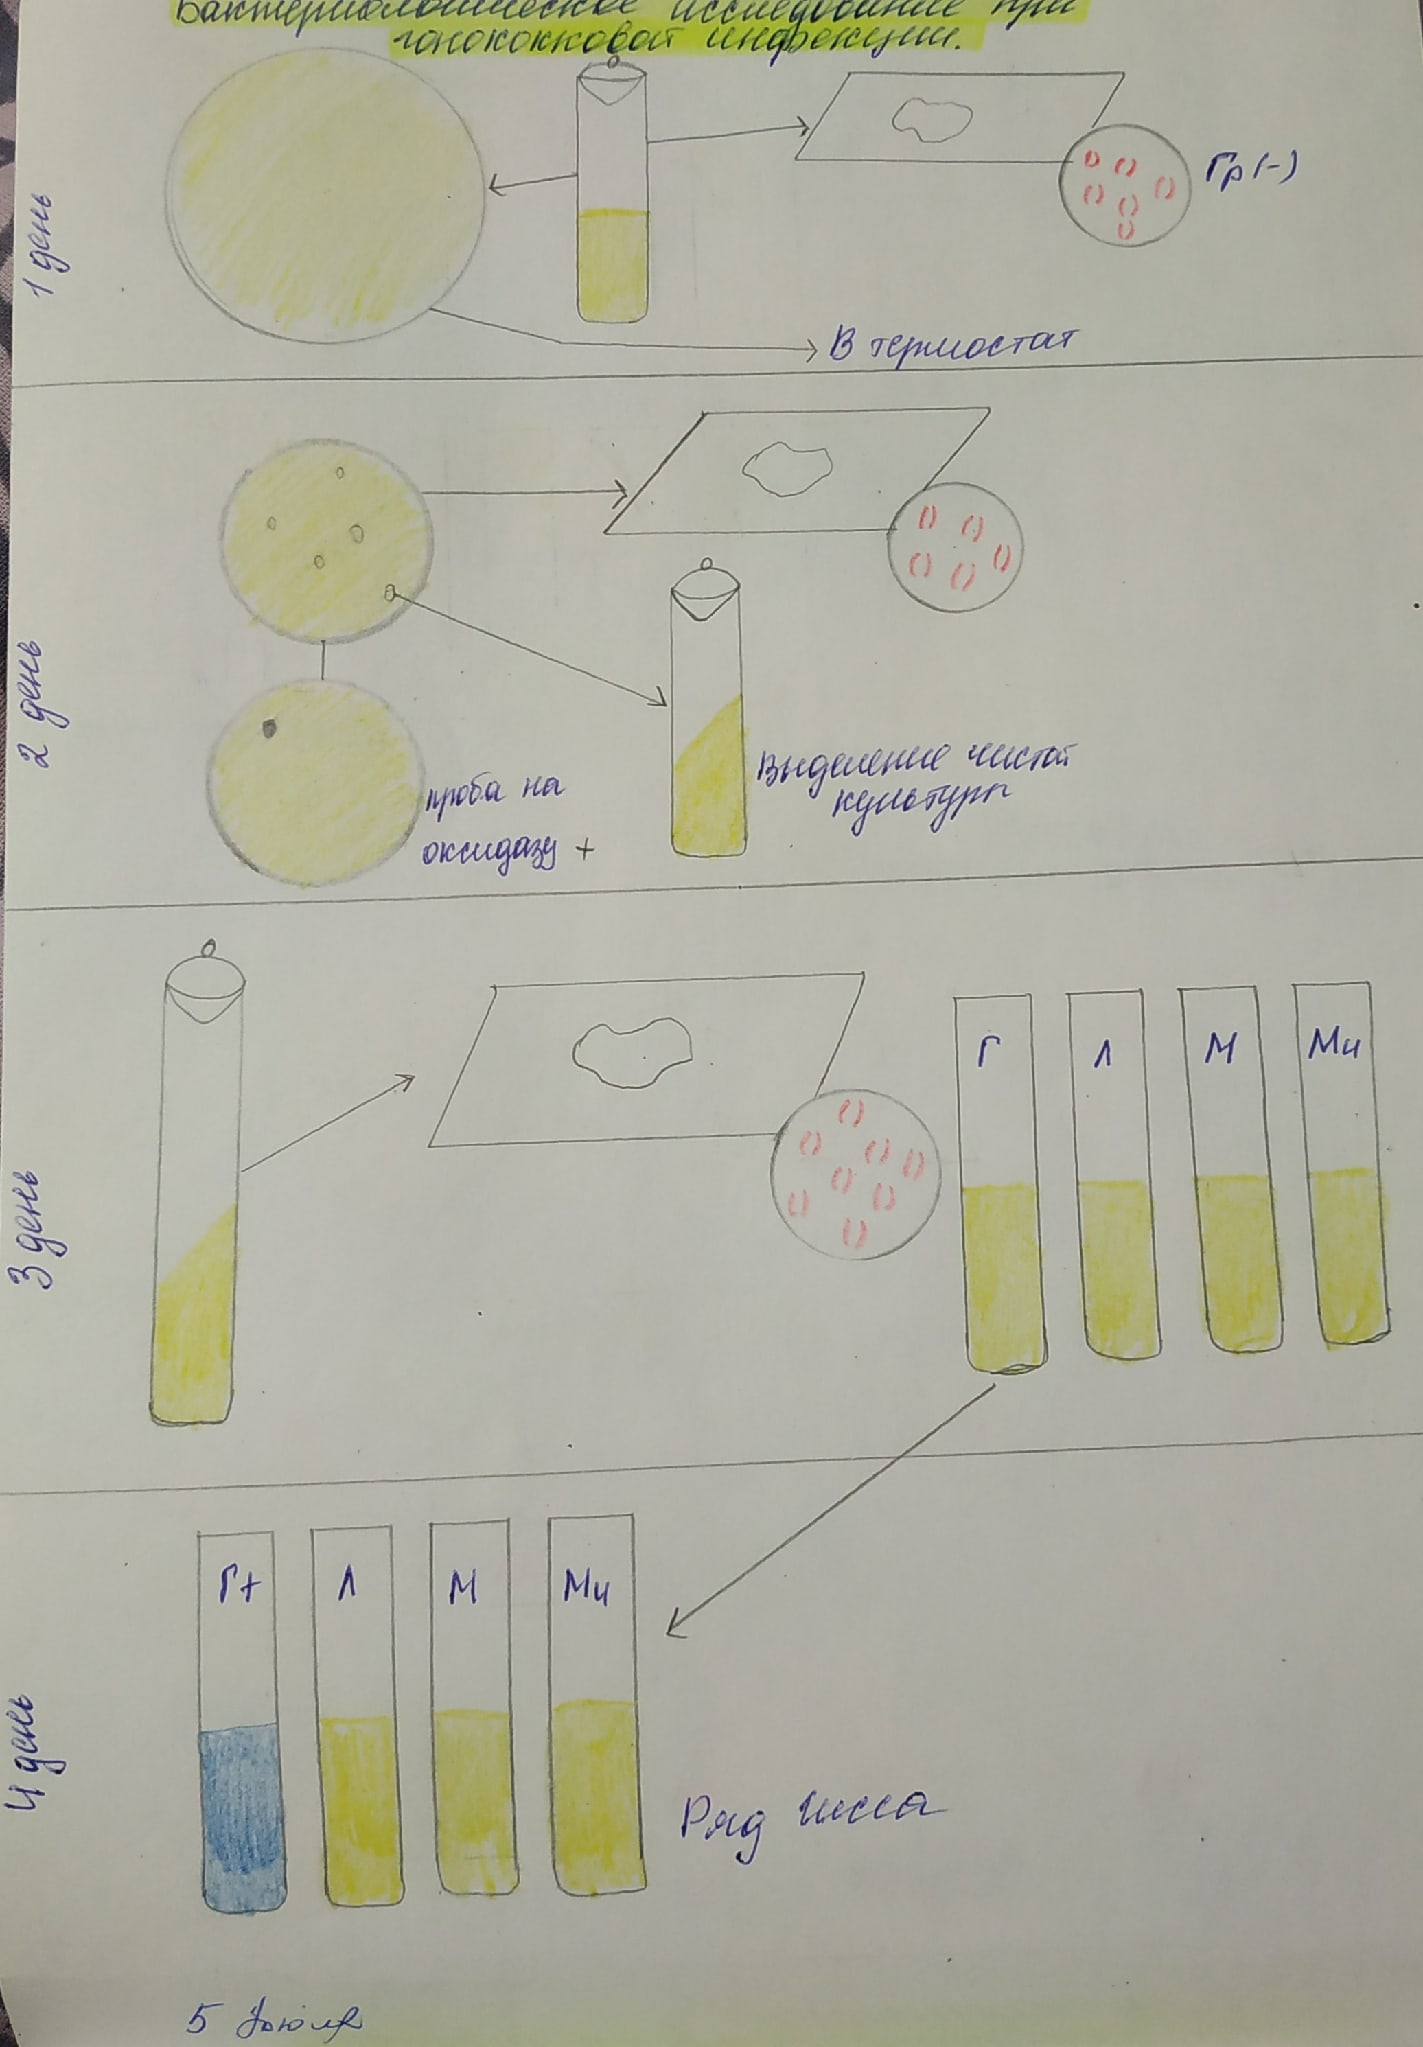 Бактериологическое исследование при
гонококковой инфекции.
1 день
Гр(-)
В термостат
2 день
проба на
оксидазу +
Выделение чистой
культуры
3 день
Г Л М Мч
4 день
Г+ Л М Мч
Ряд Гисса
5 Июля